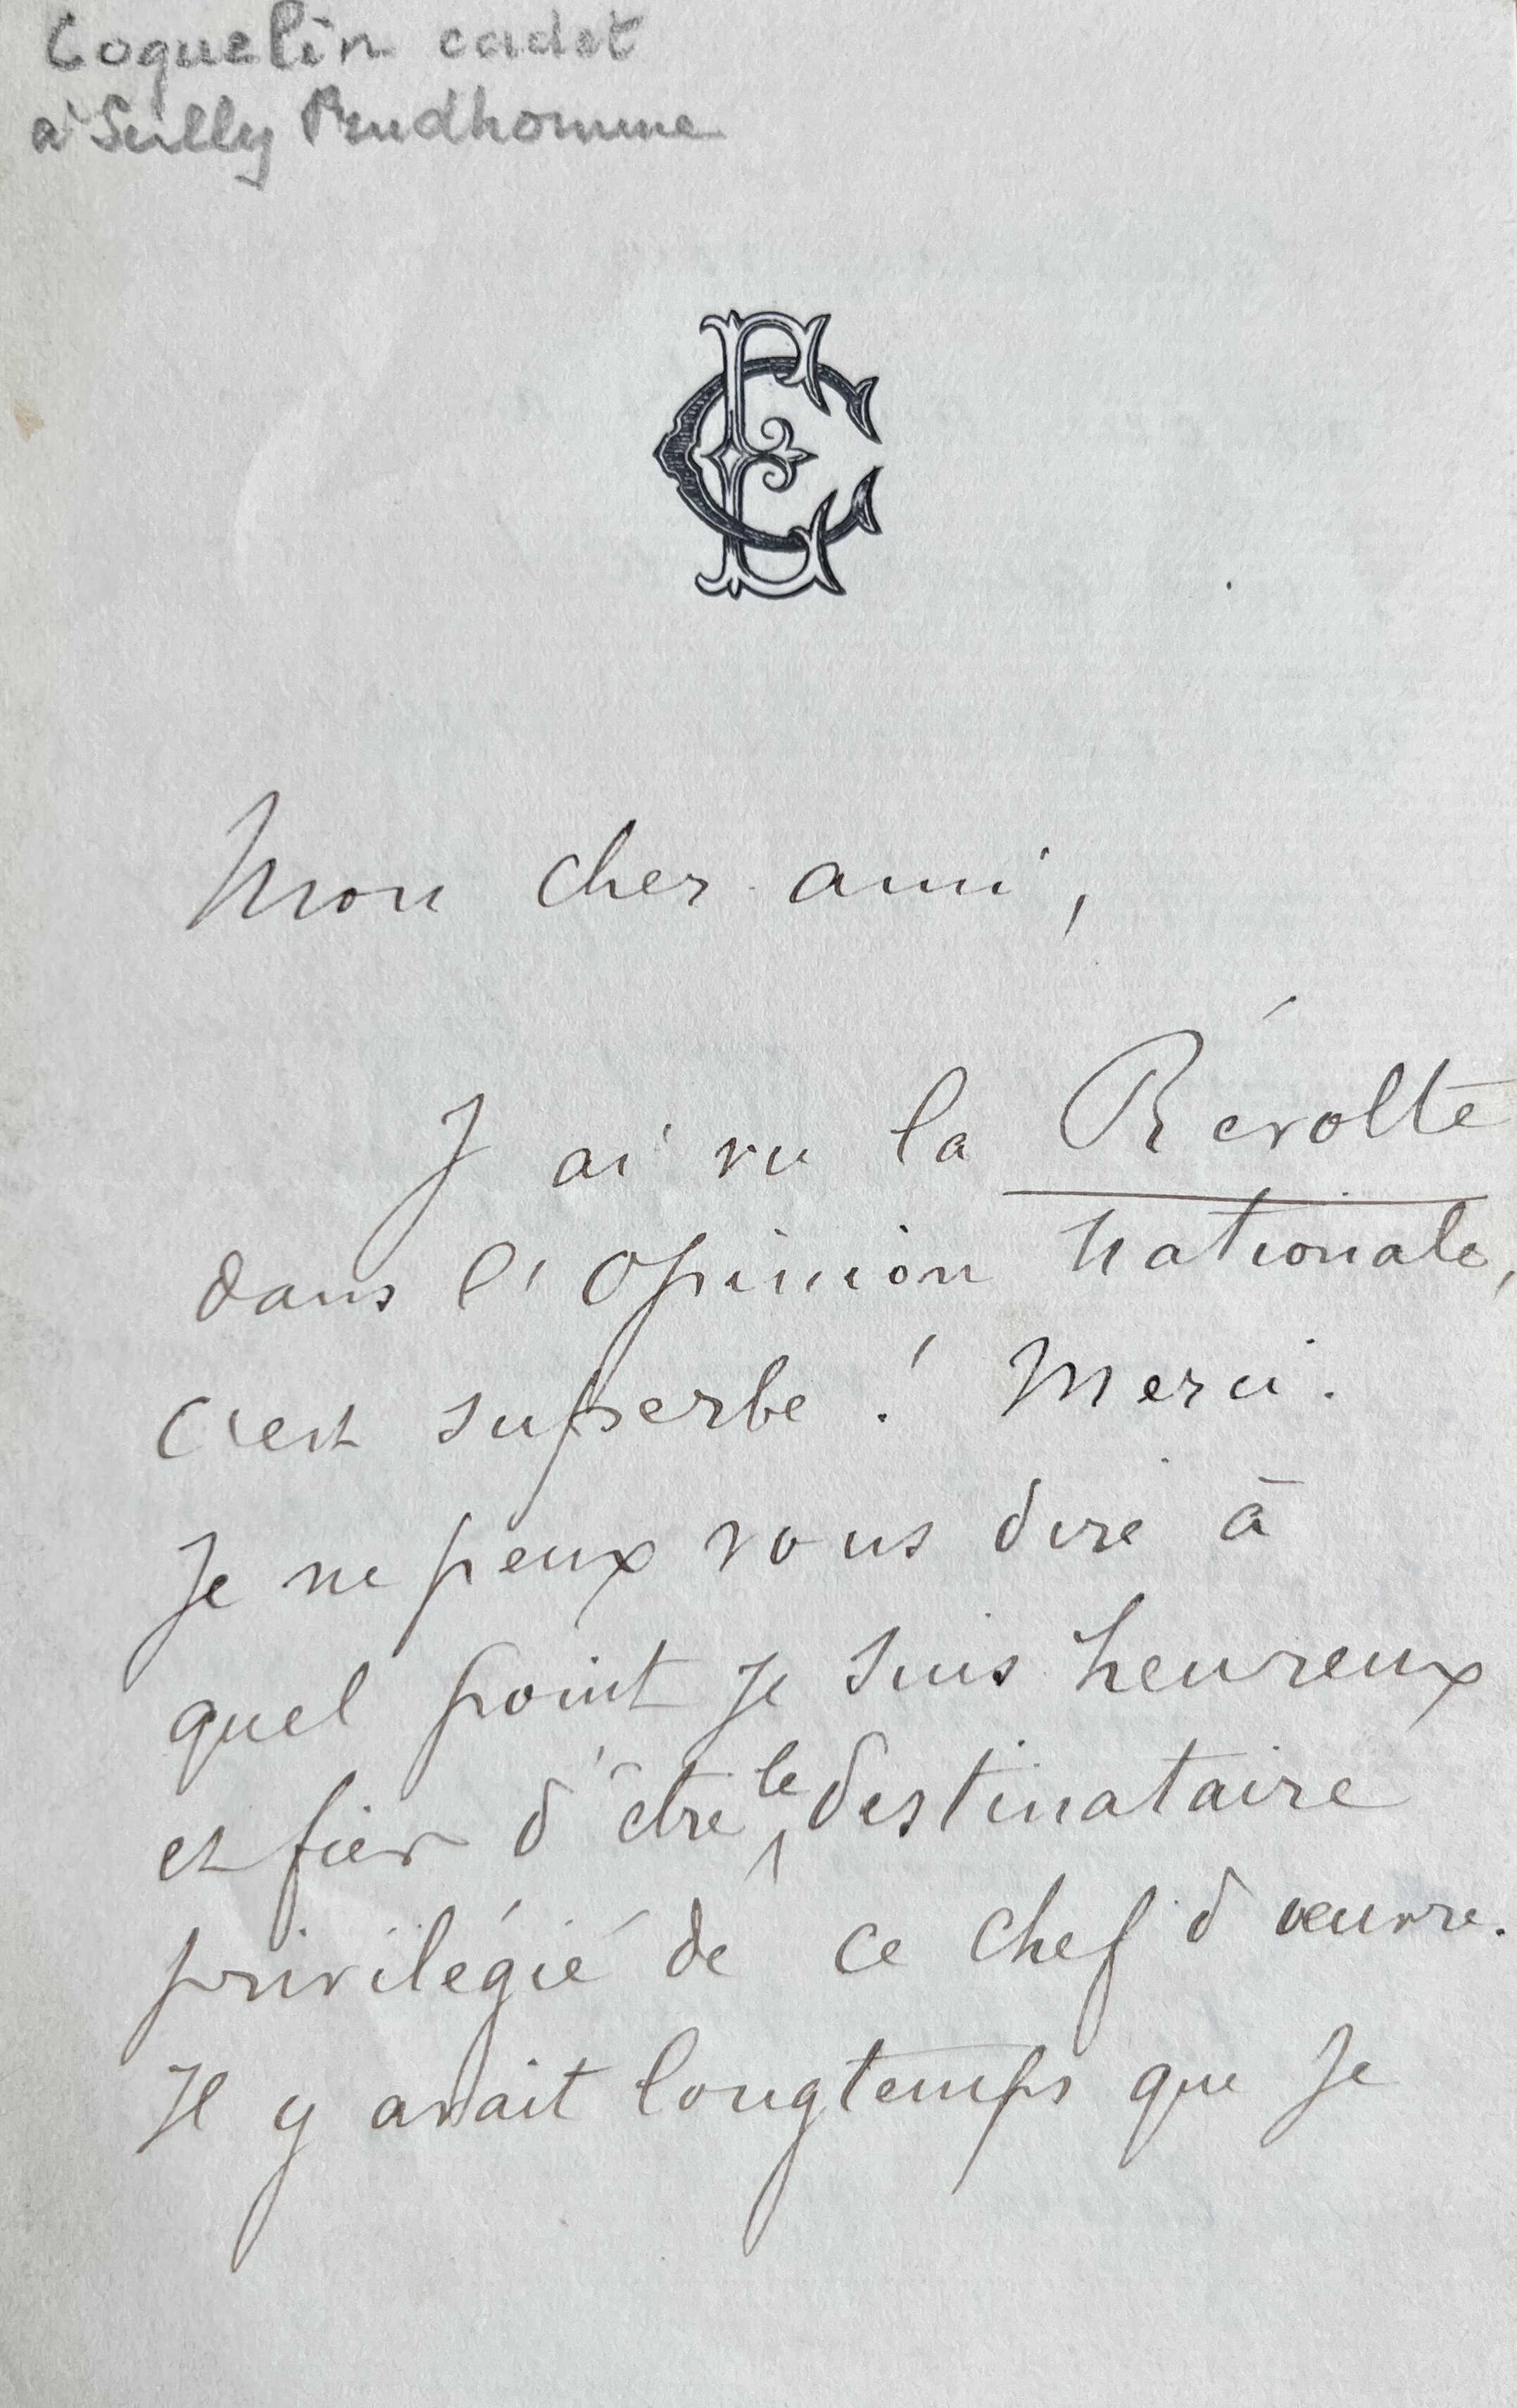 Coquelin cadet
a' Sully Prudhomme
EC
Mon cher ami,
J'ai vu la Révolte
dans l'Opinion nationale,
c'est superbe ! Merci.
Je ne peux vous dire à
quel point je suis heureux
et fier d'être le destinataire
privilégié de ce chef d'œuvre.
Il y avait longtemps que je